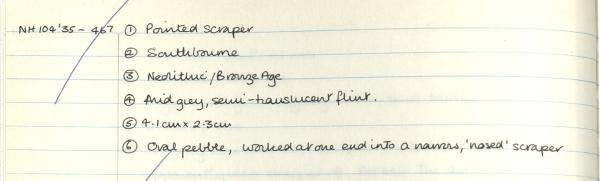 NH104'35-467 ① Pointed scraper
② Southbourne
③ Neolithic/Bronze Age
④ Mid grey, semi-translucent flint.
⑤ 4.1cm x 2.3cm
⑥ Oval pebble, worked at one end into a narrow, 'nosed' scraper